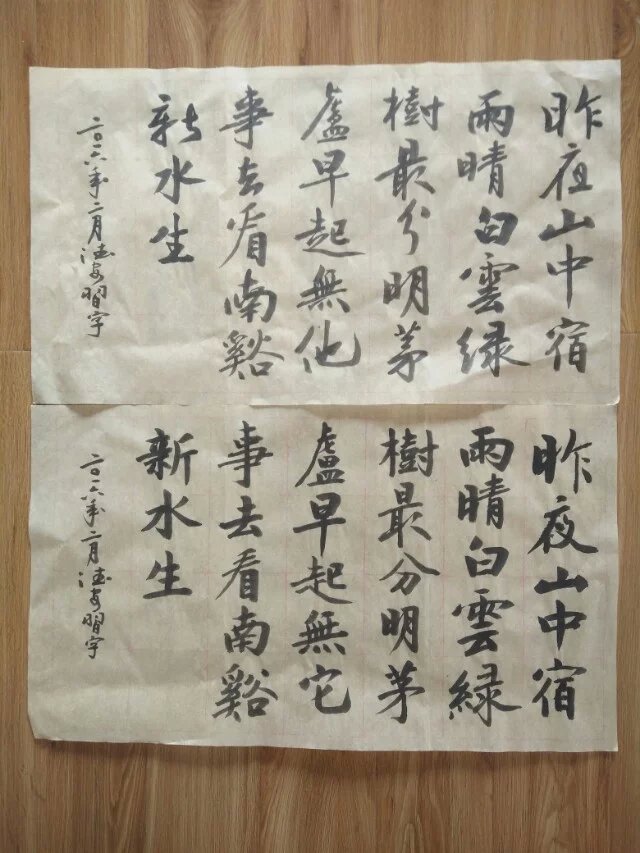 昨夜山中宿
雨晴白雲緑
樹最分明茅
盧早起無他
事去看南谿
新水生
二〇一六年二月法安習字
昨夜山中宿
雨晴白雲緑
樹最分明茅
盧早起無它
事去看南谿
新水生
二〇一六年二月法安習字